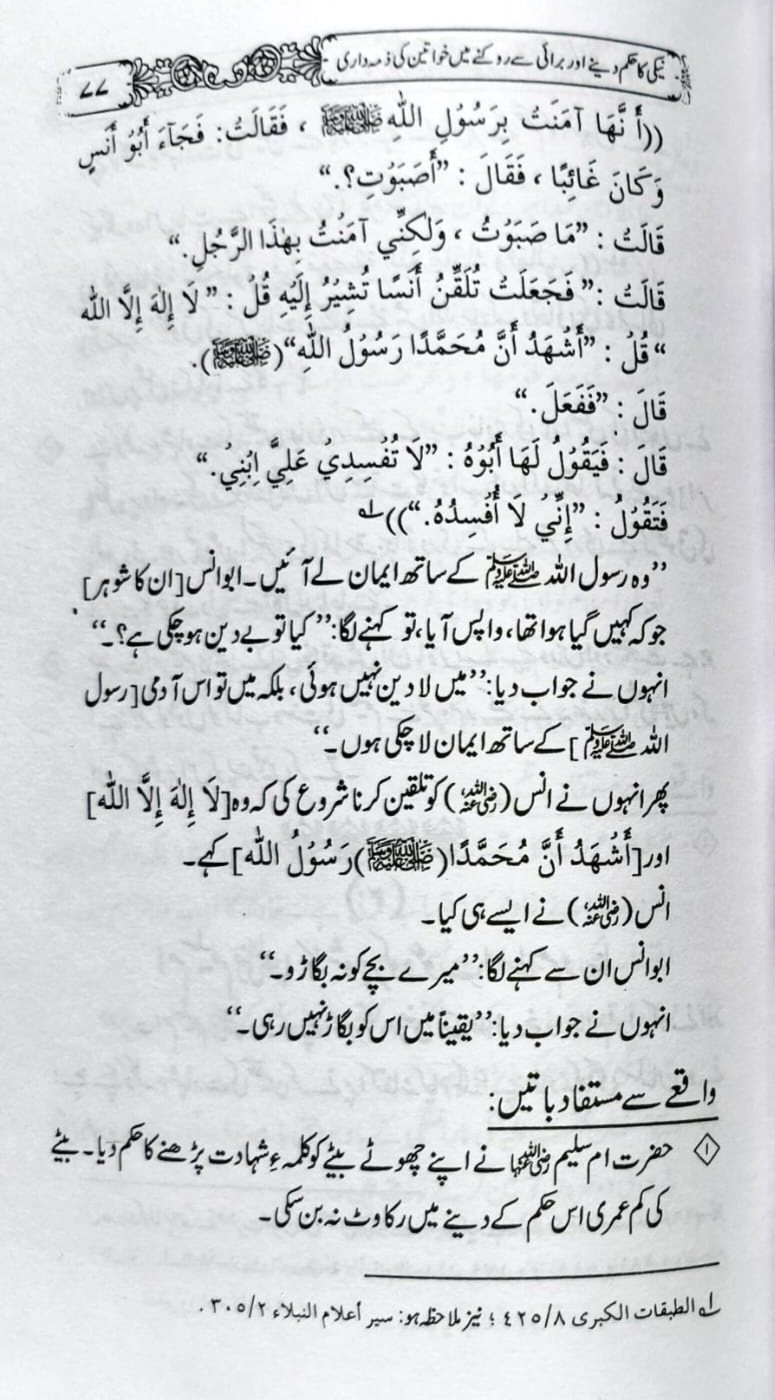 نیکی کا حکم دینے اور برائی سے روکنے میں خواتین کی ذمہ داری
۷۷
((أَنَّهَا آمَنَتْ بِرَسُوْلِ اللهِ ﷺ ، فَقَالَتْ: فَجَآءَ أَبُوْ أَنَسٍ
وَكَانَ غَائِبًا ، فَقَالَ : ”أَصَبَوْتِ؟.“
قَالَتْ : ”مَا صَبَوْتُ ، وَلٰكِنِّي آمَنْتُ بِهٰذَا الرَّجُلِ.“
قَالَتْ :” فَجَعَلَتْ تُلَقِّنُ أَنَسًا تُشِيْرُ إِلَيْهِ قُلْ : ” لَا إِلٰهَ إِلَّا الله
“ قُلْ : ”أَشْهَدُ أَنَّ مُحَمَّدًا رَسُوْلُ اللهِ“(ﷺ).
قَالَ : ”فَفَعَلَ.“
قَالَ : فَيَقُوْلُ لَهَا أَبُوْهُ : ”لَا تُفْسِدِيْ عَلَيَّ ابْنِيْ.“
فَتَقُوْلُ : ”إِنِّيْ لَا أُفْسِدُهُ.“))؂۱
”وہ رسول اللہ ﷺ کے ساتھ ایمان لے آئیں۔ ابوانس [ان کا شوہر]
جو کہ کہیں گیا ہوا تھا، واپس آیا، تو کہنے لگا: ”کیا تو بے دین ہوچکی ہے؟۔“
انہوں نے جواب دیا: ”میں لا دین نہیں ہوئی، بلکہ میں تو اس آدمی [رسول
اللہ ﷺ] کے ساتھ ایمان لا چکی ہوں۔“
پھر انہوں نے انس (رضی اللہ عنہ) کو تلقین کرنا شروع کی کہ وہ [لَا إِلٰهَ إِلَّا الله]
اور [أَشْهَدُ أَنَّ مُحَمَّدًا (ﷺ) رَسُوْلُ الله] کہے۔
انس (رضی اللہ عنہ) نے ایسے ہی کیا۔
ابوانس ان سے کہنے لگا: ”میرے بچے کو نہ بگاڑو۔“
انہوں نے جواب دیا: ”یقیناً میں اس کو بگاڑ نہیں رہی۔“
واقعے سے مستفاد باتیں:
۱ حضرت ام سلیم رضی اللہ عنہا نے اپنے چھوٹے بیٹے کو کلمہءِ شہادت پڑھنے کا حکم دیا۔ بیٹے
کی کم عمری اس حکم کے دینے میں رکاوٹ نہ بن سکی۔
؂۱ الطبقات الكبرى ٤٢٥/٨ ؛ نیز ملاحظہ ہو: سير أعلام النبلاء ٣٠٥/٢ .